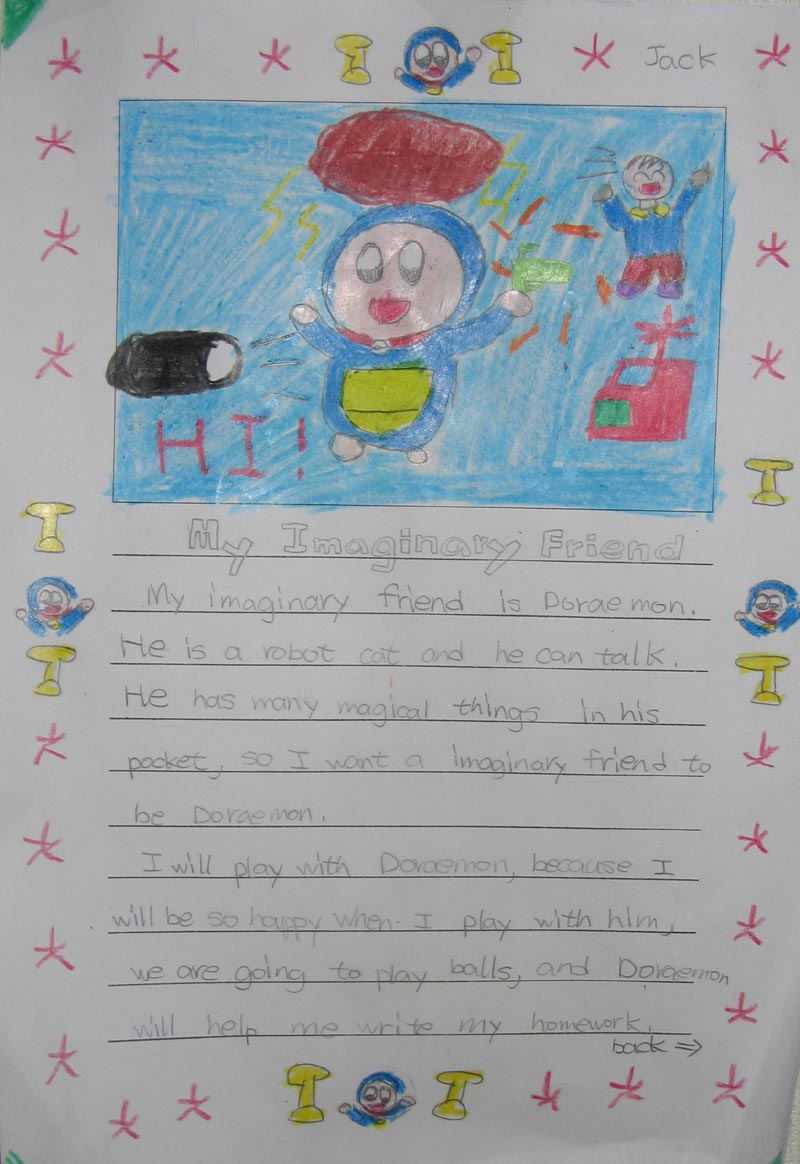 Jack
HI!
My Imaginary Friend
My imaginary friend is Doraemon.
He is a robot cat and he can talk.
He has many magical things in his
pocket, so I want a imaginary friend to
be Doraemon.
I will play with Doraemon, because I
will be so happy when I play with him,
we are going to play balls, and Doraemon
will help me write my homework.
back ⇒